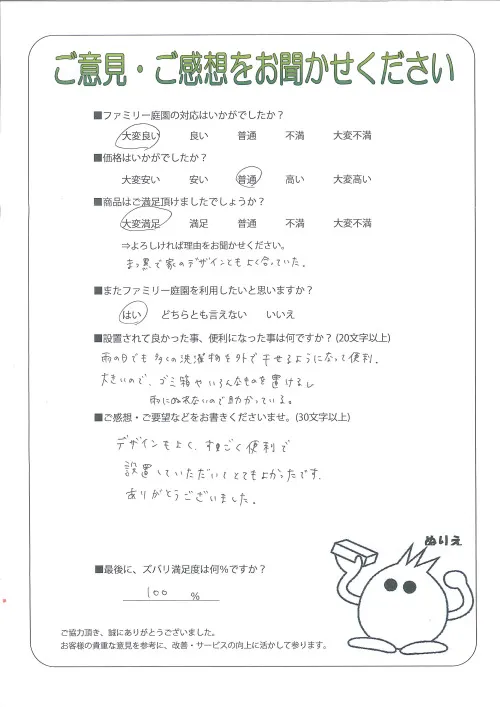 ご意見・ご感想をお聞かせください
■ファミリー庭園の対応はいかがでしたか？
大変良い 良い 普通 不満 大変不満
■価格はいかがでしたか？
大変安い 安い 普通 高い 大変高い
■商品はご満足頂けましたでしょうか？
大変満足 満足 普通 不満 大変不満
⇒よろしければ理由をお聞かせください。
まっ黒で家のデザインともよく合っていた。
■またファミリー庭園を利用したいと思いますか？
はい どちらとも言えない いいえ
■設置されて良かった事、便利になった事は何ですか？(20文字以上)
雨の日でも多くの洗濯物を外で干せるようになって便利.
大きいので、ゴミ箱やいろんなものを置けるし
雨にぬれないので助かっている。
■ご感想・ご要望などをお書きくださいませ。(30文字以上)
デザインもよく、すごく便利で
設置していただいてとてもよかったです.
ありがとうございました。
ぬりえ
■最後に、ズバリ満足度は何％ですか？
100 ％
ご協力頂き、誠にありがとうございました。
お客様の貴重な意見を参考に、改善・サービスの向上に活かして参ります。